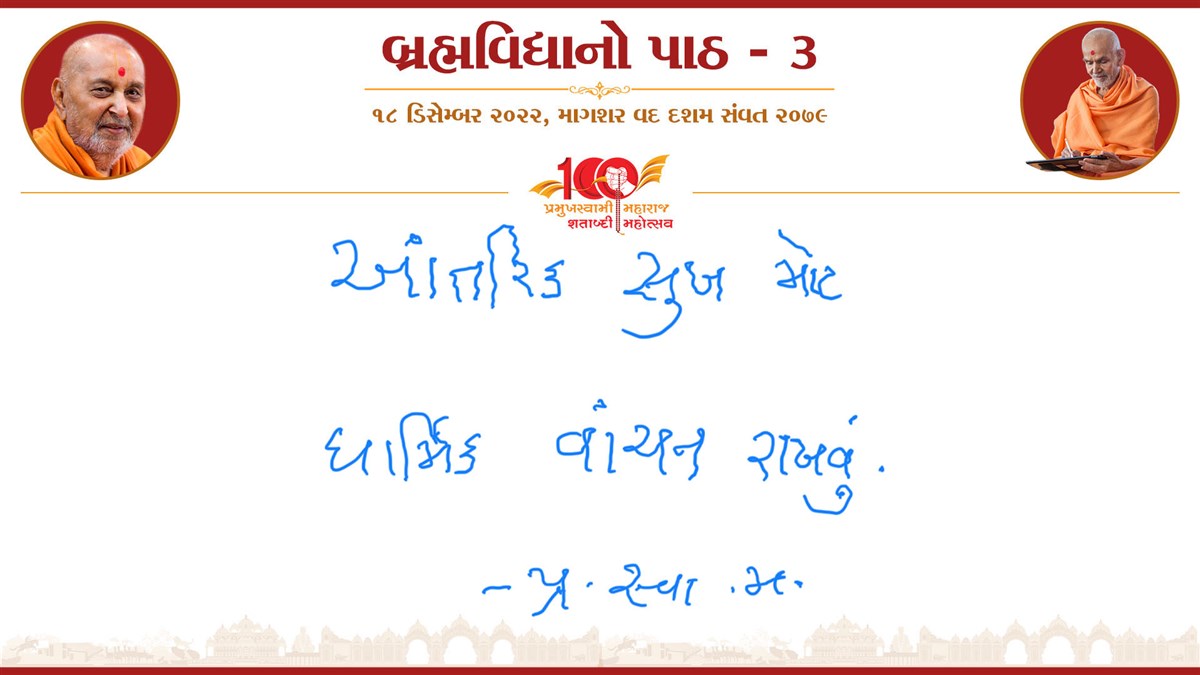 બ્રહ્મવિદ્યાનો પાઠ - ૩
૧૮ ડિસેમ્બર ૨૦૨૨, માગશર વદ દશમ સંવત ૨૦૭૯
100
પ્રમુખસ્વામી મહારાજ
શતાબ્દી મહોત્સવ
આંતરિક સુખ માટે
ધાર્મિક વાંચન રાખવું.
- પ્ર. સ્વા. મ.